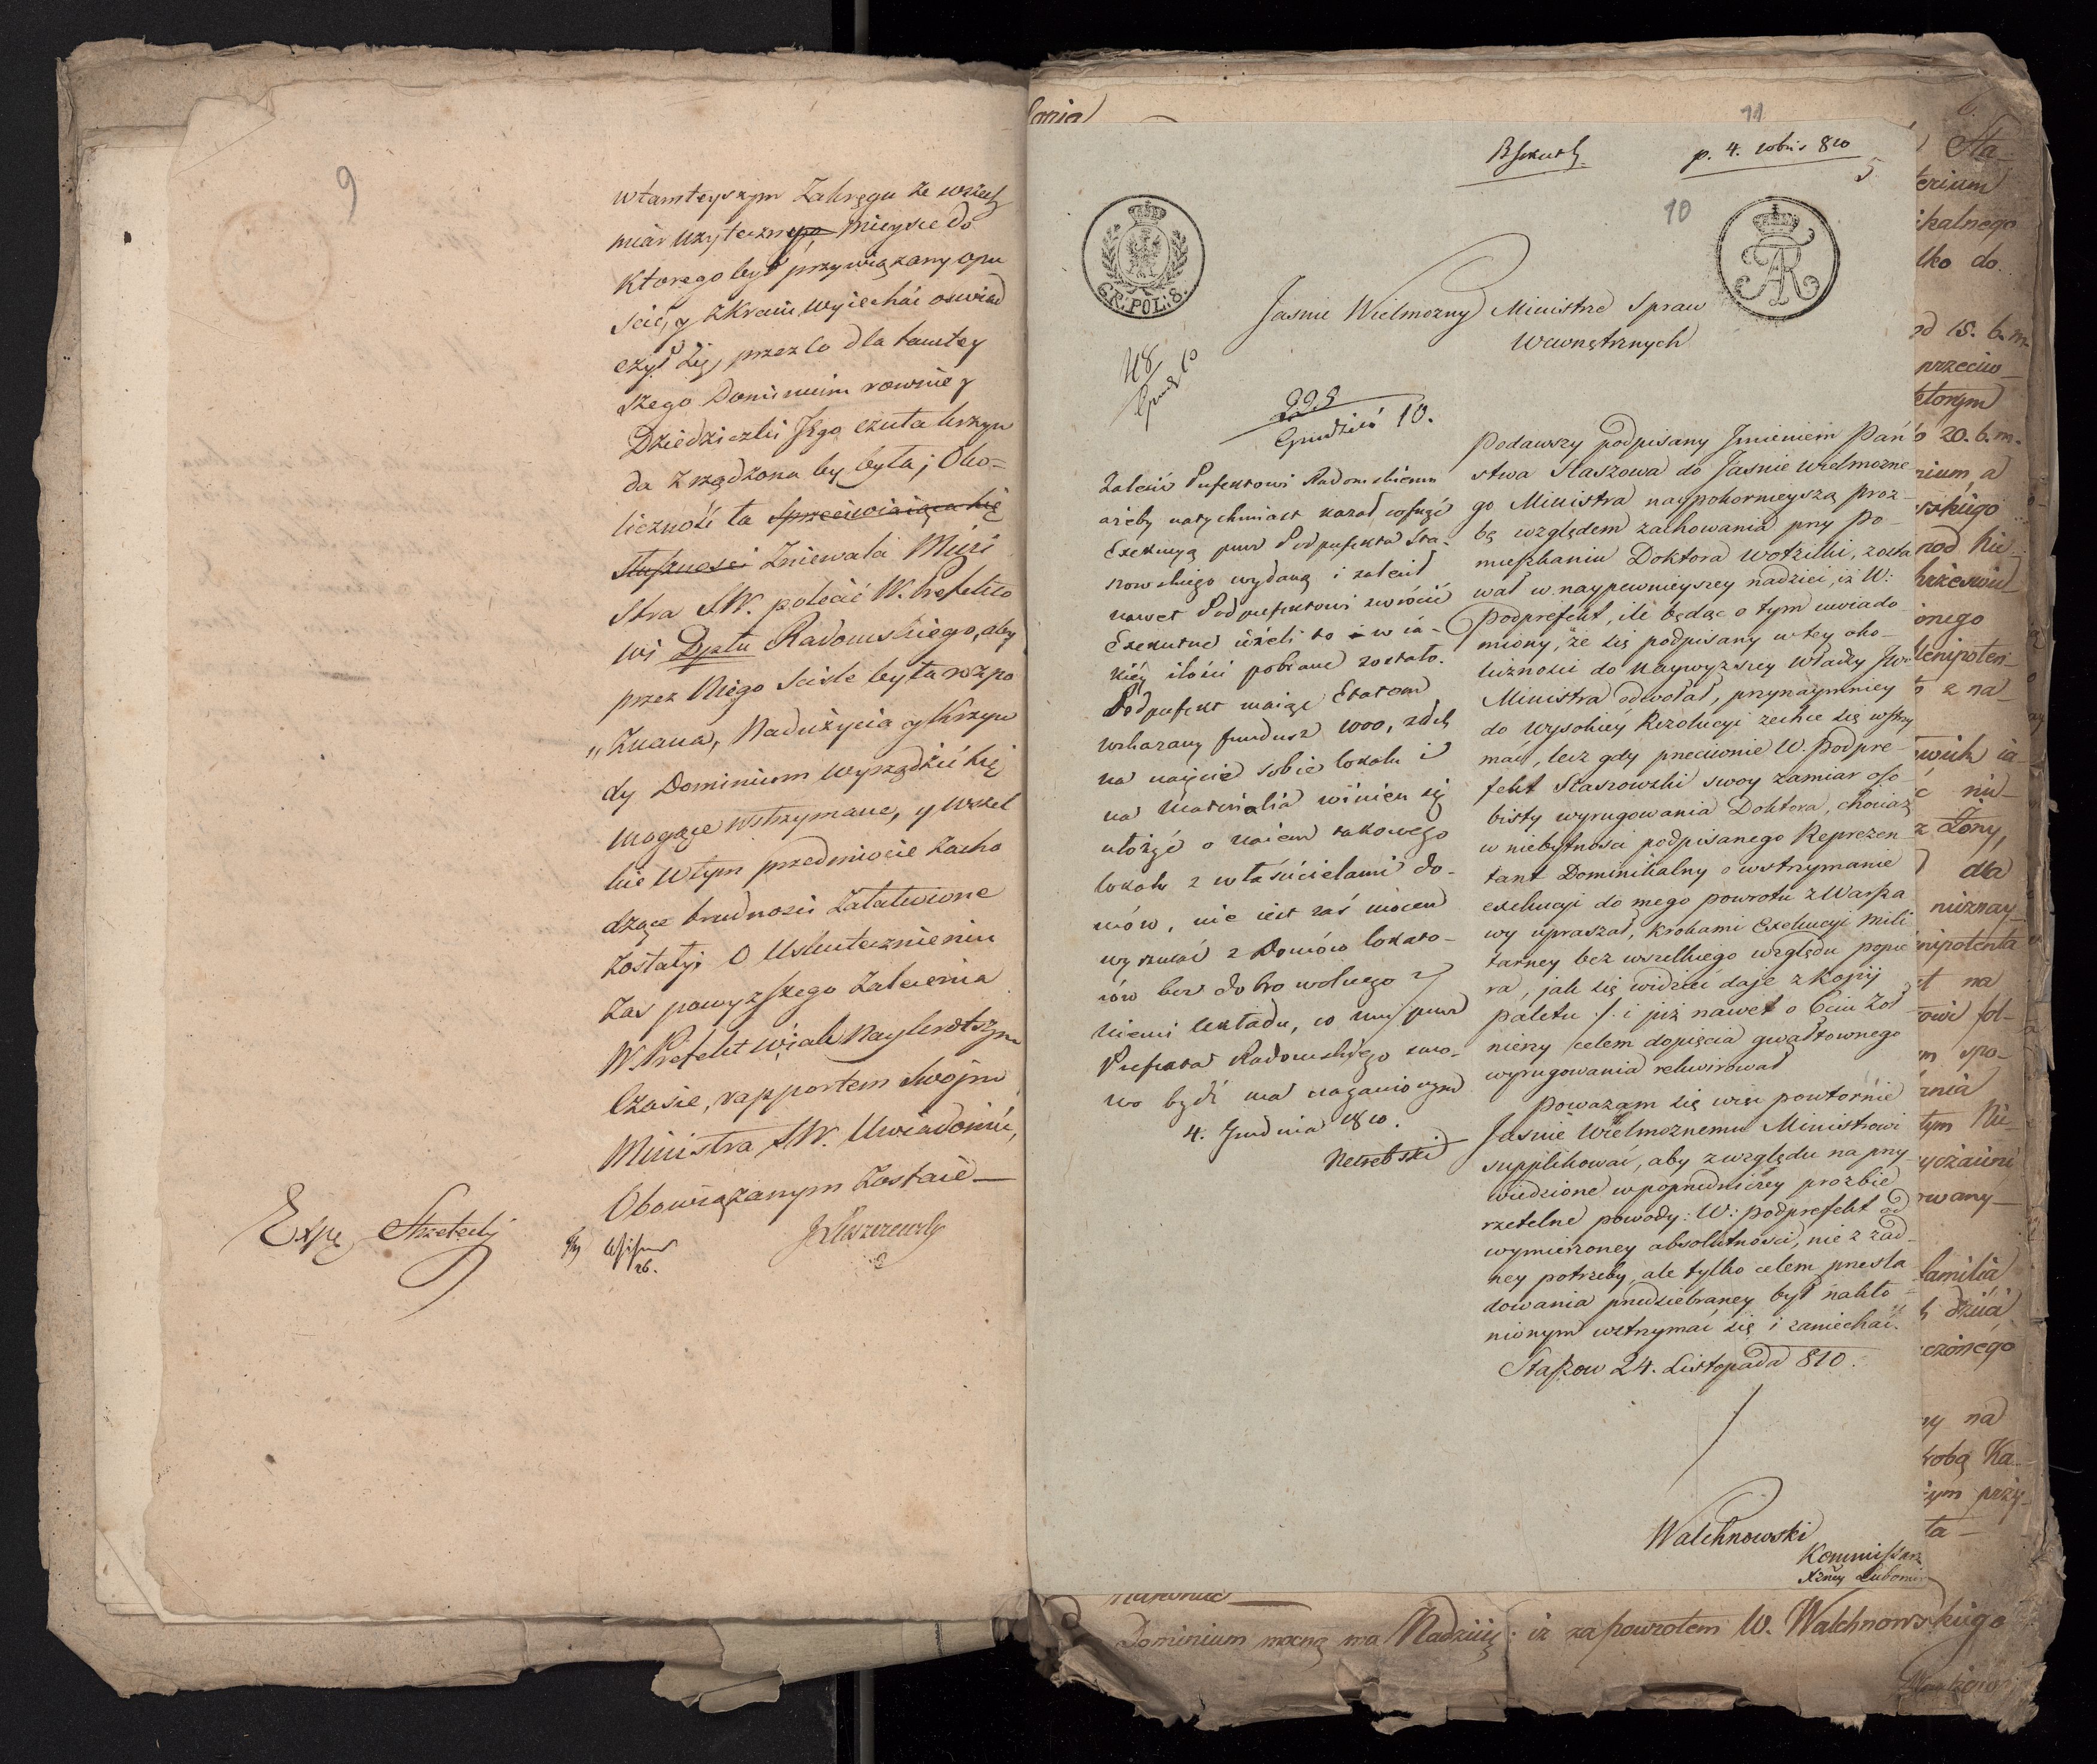 9
w tamteyszym Zakręgu ze wszech
miar użytecznego, mieysce do
ktorego był przywiązany opu
scić, y z Kraiu wyiechać oswiad
czył się, przez co dla tamtey
szego Dominium rownie y
Dziedziczki Jego czuła krzyw
da zrządzona by była; Oko=
liczność ta sprzeciwiaiąca się
słusznosci zniewala Mini
stra S.W. polecić W. Prefekto
wi Dptu Radomskiego, aby
przez Niego scisle była rozpo
"znana, Nadużycia y Krzyw
dy Dominium wyrządzić się
mogące wstrzymane, y wszel
kie w tym przedmiocie zacho
dzące trudnosci załatwione
zostały. O uskutecznieniu
zas powyższego zalecenia
W. Prefekt wiak naykrotszym
Czasie, rapportem swoim
Ministra S.W. uwiadomić,
Obowiązanym zostaie —
26.
lania
11
p. 4. xbris 810
5
10
GR: POL: 8.
AR
Jasnie Wielmozny Ministrze Spraw
Wewnętrznych
48
993
Grudzień 10.
Zalecić Prefektowi Radomskiemu
ażeby natychmiast kazał cofnąć
Exekucyą przez Podprefekta Sta-
szowskiego wydaną i zalecił
nawet Podprefektowi zwrócić
Exekutne ieżeli to w ia-
kiéy ilości pobrane zostało.
Podprefekt maiąc Etatem
wskazany fundusz 1000, złch
na naięcie sobie lokalu i
na Materialia winien się
ułożyć o naiem takowego
lokalu z właścicielami do-
mów, nie iest zaś mocen
wyrzucać z Domów lokato-
rów bez dobrowolnego z
niemi układu, co mu przez
Prefekta Radomskiego suro-
wo bydź ma naganionym
4. Grudnia 1810.
Netrebski
Podawszy podpisany Jmieniem Pań
stwa Staszowa do Jasnie wielmozne
go Ministra naypokornieyszą proz-
bę względem zachowania przy Po-
mieszkaniu Doktora Wotzilki, zosta
wał w naypewnieyszey nadziei, iż W:
Podprefekt, ile będąc o tym uwiado
miony, że się podpisany w tey oko-
liczności do naywyzszey władzy Jwo
Ministra odwołał, przynaymniey
do wysokiey Rezolucyi zechce się wstrzy
mać, lecz gdy przeciwnie W. Podpre-
fekt Staszowski swoy zamiar oso-
bisty wyrugowania Doktora, chociaz
w niebytnosci podpisanego Reprezen
tant Dominikalny o wstrzymanie
exekucyi do mego powrotu z Warsza
wy upraszał, krokami Exekucyi Mili
tarney bez wszelkiego względu popie
ra, jak się widzieć daje z kopij
paletu ./. i już nawet o 6ciu Zoł
nierzy celem dopięcia gwałtownego
wyrugowania rekwirował
Powazam się więc powtórnie
Jasnie Wielmoznemu Ministrowi
supplikować, aby z względu na przy-
wiedzione w poprzedniczey prozbie
rzetelne powody: W: Podprefekt od
wymierzoney absolutnosci, nie z zad-
ney potrzeby, ale tylko celem przesla
dowania przedsiebraney był nakło-
nionym wstrzymać się i zaniechać.
Staszow 24. Listopada 810.
Walchnowski
Kommissarz
Xżney Lubomir
Sta-
terium
ikalnego
lko do
od 15. b.m.
przeciw
ktorym
20. b. m.
rium, a
onego
lenipoten-
z na
z Żony,
dla
nipotenta
na
spo-
rowany
familia
dzieci
czonego
ny na
sobą Ka-
przy-
ta —
Dominium mocną ma Nadzieię: iż za powrotem W. Walchnowskiego